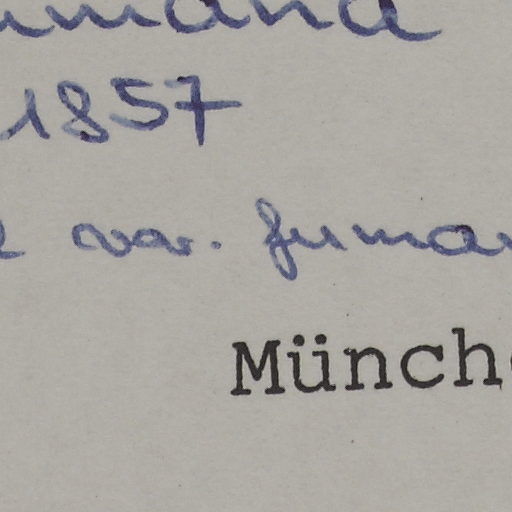 umana
1857
var. fumar
Münche